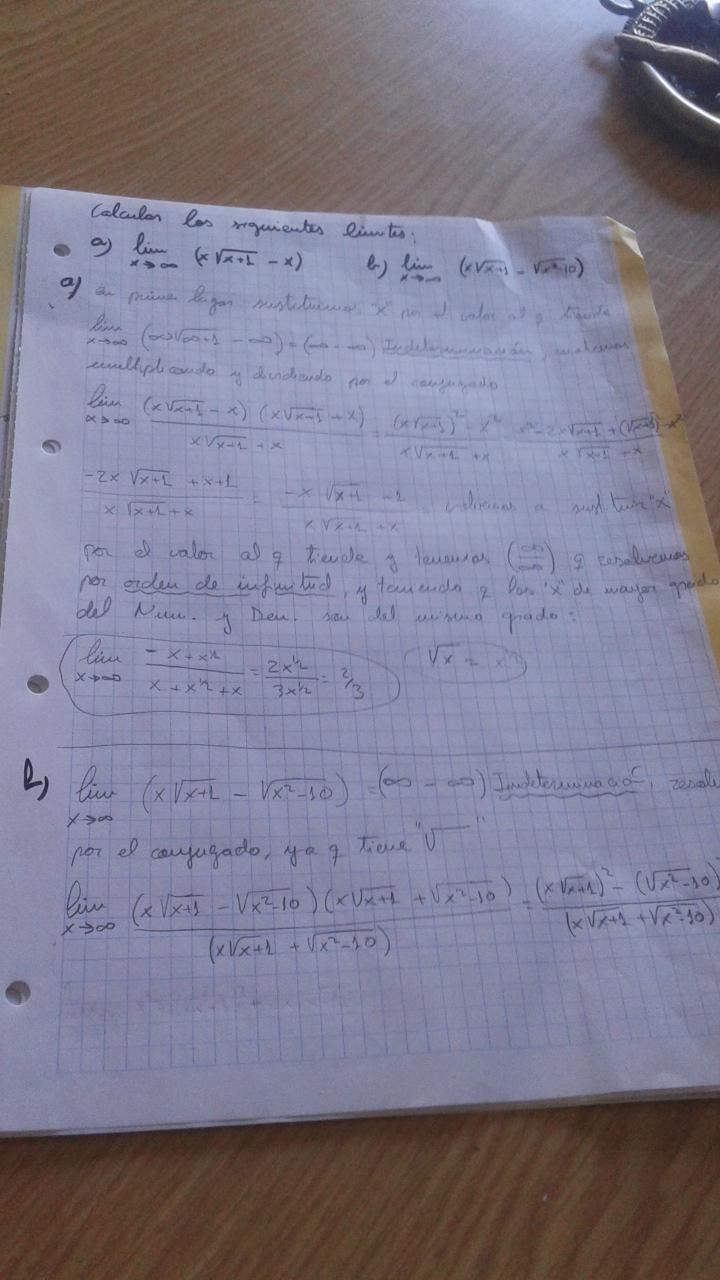 Calcular los siguientes límites:
a) lim x→∞ (x√x+1 - x) b) lim x→∞ (x√x+1 - √x²-10)
a) En primer lugar sustituimos "x" por el valor al q tiende
lim x→∞ (∞√∞+1 - ∞) = (∞ - ∞) Indeterminación,
multiplicando y dividiendo por el conjugado
lim x→∞ (x√x+1 - x) (x√x+1 + x) / x√x+1 + x = (x√x+1)² - x² / x√x+1 + x = x² - 2x√x+1 + (√x+1)² - x² / x√x+1 + x
-2x √x+1 + x+1 / x √x+1 + x = -x √x+1 -1 / x √x+1 + x = volvemos a sustituir "x"
por el valor al q tiende y tenemos (∞/∞) q resolvemos
por orden de infinitud, y teniendo q las "x" de mayor grado
del Num. y Den. son del mismo grado:
lim x→∞ - x + x½ / x + x½ + x = 2x½ / 3x½ = 2/3 √x =
b) lim x→∞ (x√x+1 - √x²-10) = (∞ - ∞) Indeterminació,
por el conjugado, ya q tiene "√ "
lim x→∞ (x√x+1 - √x²-10) (x√x+1 + √x²-10) / (x√x+1 + √x²-10) = (x√x+1)² - (√x²-10) / (x√x+1 + √x²-10)